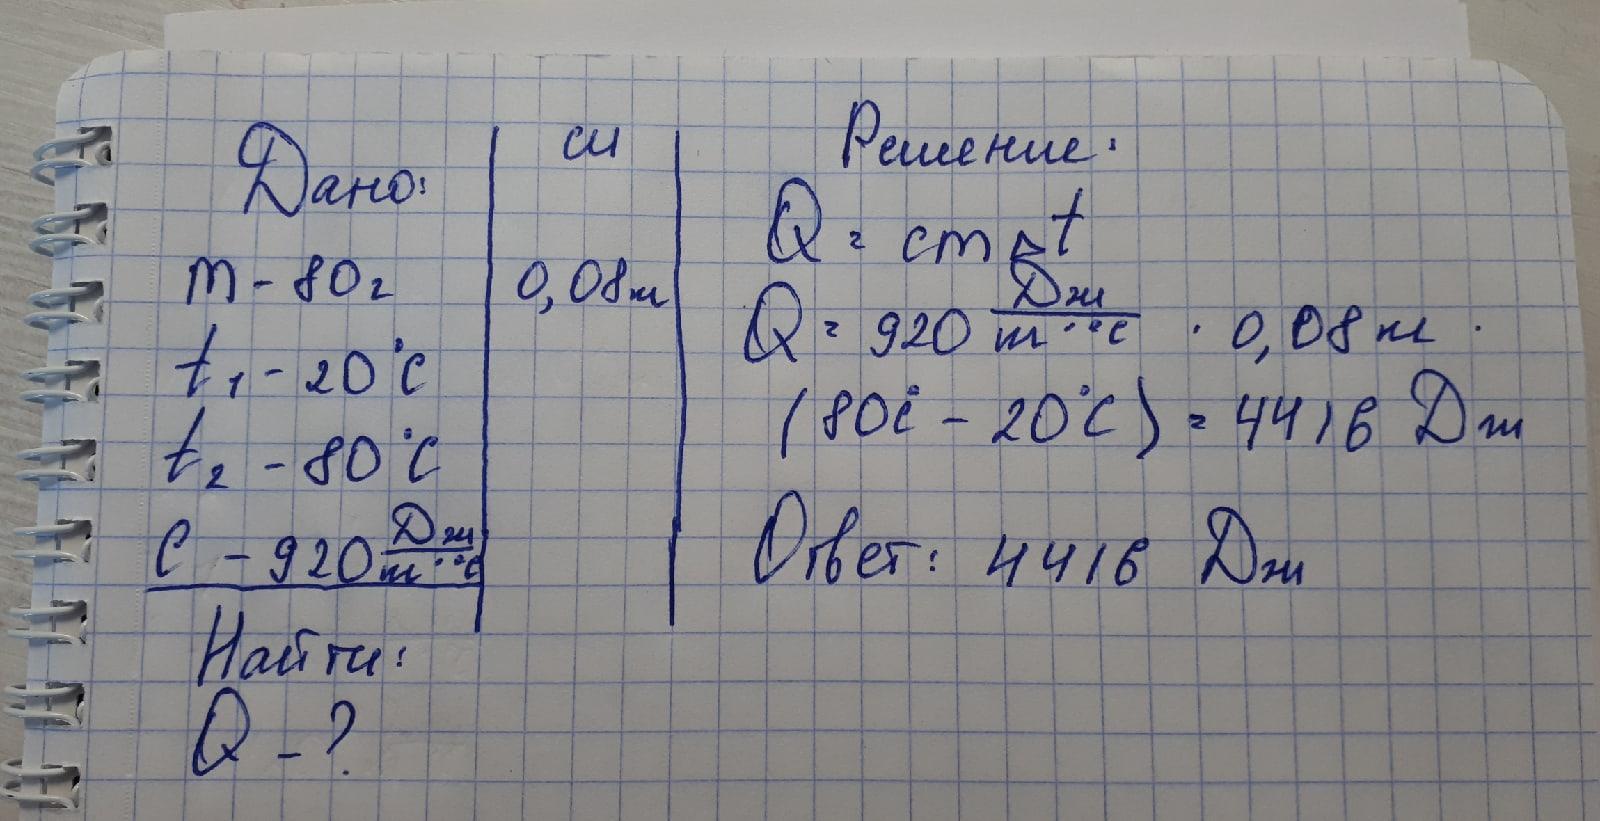 Дано:
m - 80 г
t₁ - 20°C
t₂ - 80°C
C - 920 Дж/кг·°C
Найти:
Q - ?
СИ
0,08 кг
Решение:
Q = cm △t
Q = 920 Дж/кг·°C · 0,08 кг ·
(80°C - 20°C) = 4416 Дж
Ответ: 4416 Дж